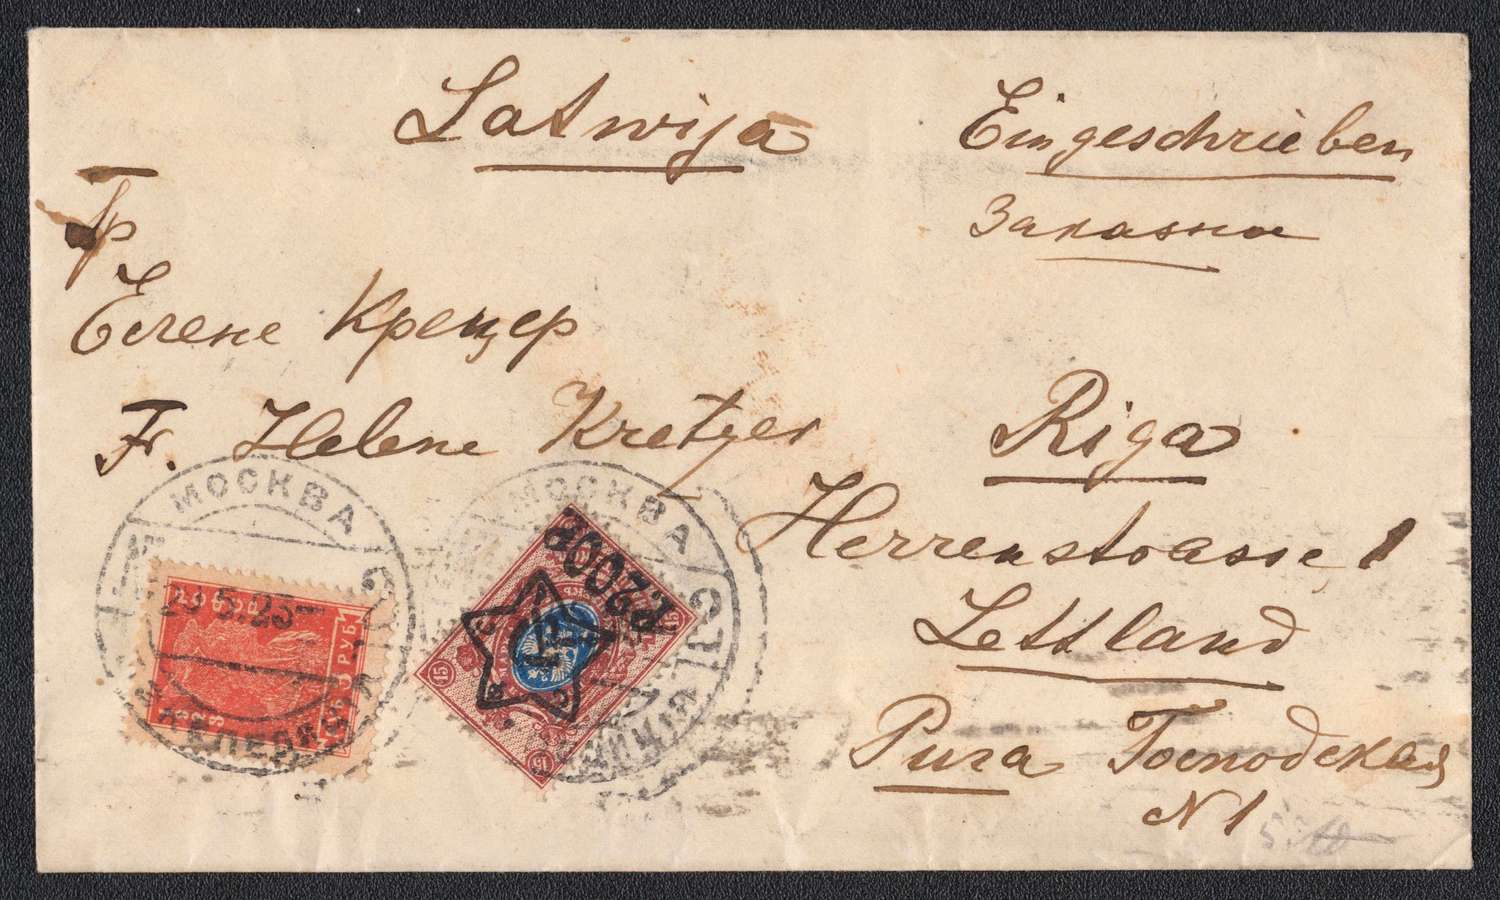 Latwija
Eingeschrieben
Заказное
Гр
Елене Крецер
Fr. Helene Kretzer
Riga
Herrenstrasse 1
Lettland
Рига Господская
N 1
МОСКВА
5.23
РУБ
МОСКВА
200Р.
15
15